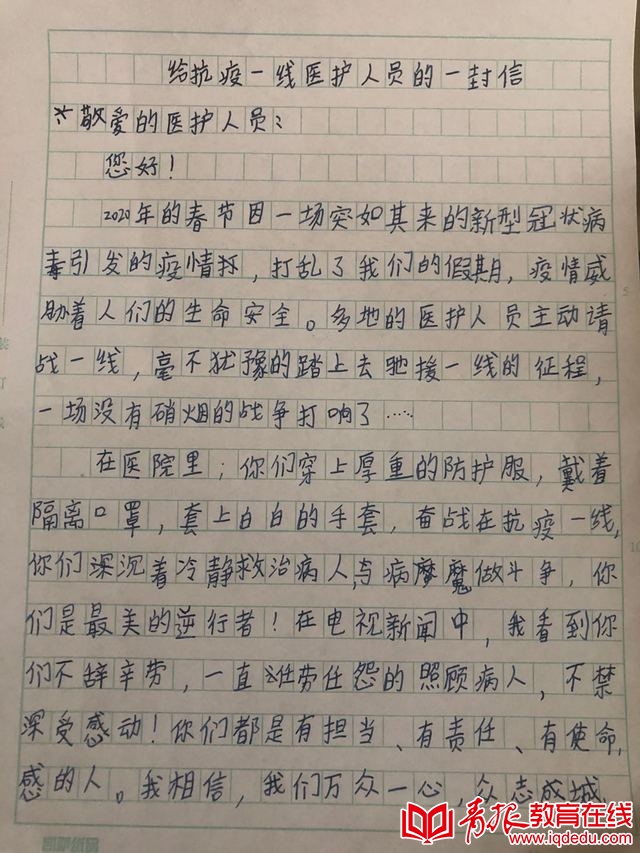 给抗疫一线医护人员的一封信
*敬爱的医护人员:
您好!
2020年的春节因一场突如其来的新型冠状病
毒引发的疫情,打乱了我们的假期,疫情威
胁着人们的生命安全。多地的医护人员主动请
战一线,毫不犹豫的踏上去驰援一线的征程,
一场没有硝烟的战争打响了……
在医院里;你们穿上厚重的防护服,戴着
隔离口罩,套上白白的手套,奋战在抗疫一线,
你们深沉着冷静救治病人,与病魔做斗争,你
们是最美的逆行者!在电视新闻中,我看到你
们不辞辛劳,一直任劳任怨的照顾病人,不禁
深受感动!你们都是有担当、有责任、有使命
感的人。我相信,我们万众一心,众志成城,
青报教育在线
www.iqdedu.com